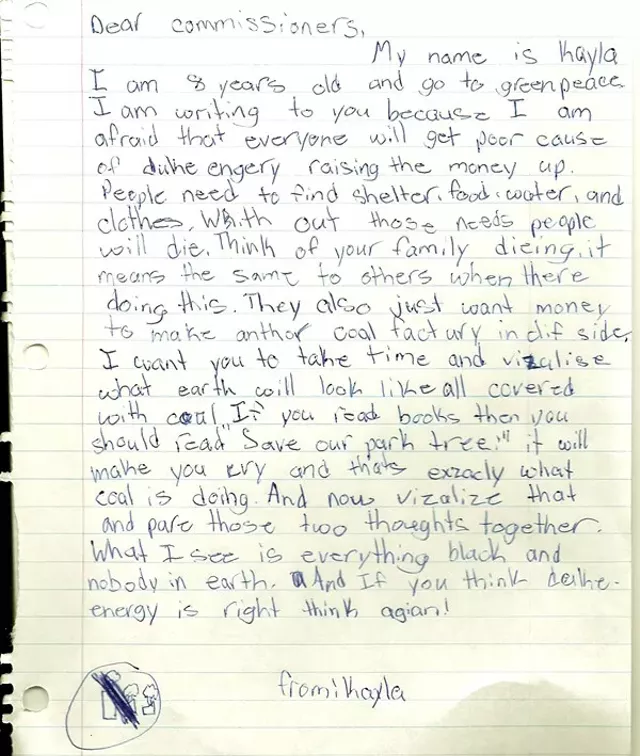 Dear commissioners,
My name is Kayla
I am 8 years old and go to greenpeace
I am writing to you because I am
afraid that everyone will get poor cause
of duke engery raising the money up.
People need to find shelter, food, water, and
clothes, With out those needs people
will die. Think of your family dieing, it
means the same to others when there
doing this. They also just want money
to make anthor coal factury in dif side,
I want you to take time and vizalise
what earth will look like all covered
with coal. If you read books then you
should read "Save our park tree!" it will
make you cry and thats exzacly what
coal is doing. And now vizalize that
and pare those two thoughts together.
What I see is everything black and
nobody in earth. And If you think deuke-
energy is right think agian!
from: Kayla